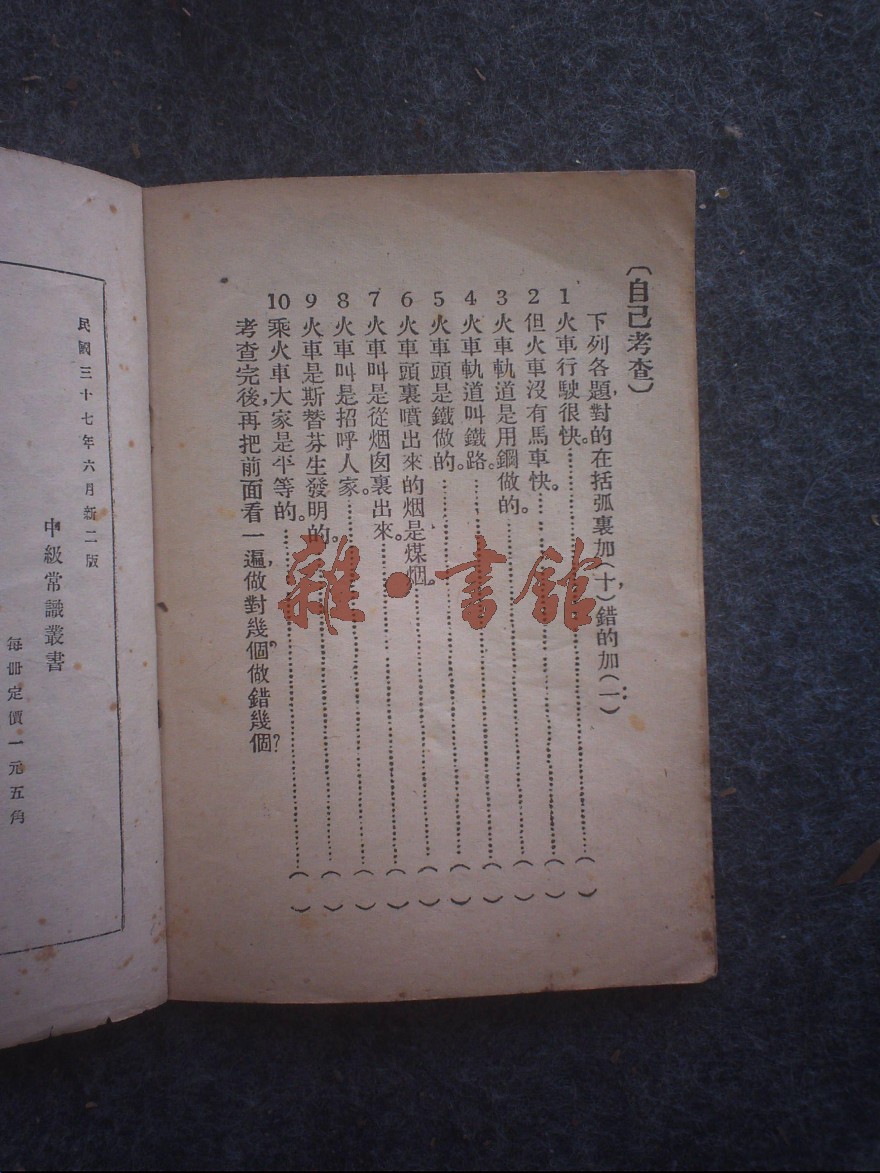 〔自己考查〕
下列各題,對的在括弧裏加(十),錯的加(一):
1 火車行駛很快。( )
2 但火車沒有馬車快。( )
3 火車軌道是用鋼做的。( )
4 火車軌道叫鐵路。( )
5 火車頭是鐵做的。( )
6 火車頭裏噴出來的烟是煤烟。( )
7 火車叫是從烟囱裏出來。( )
8 火車叫是招呼人家。( )
9 火車是斯替芬生發明的。( )
10 乘火車大家是平等的。( )
考查完後,再把前面看一遍,做對幾個,做錯幾個?
民國三十七年六月新二版
中級常識叢書
每冊定價一元五角
雜·書館